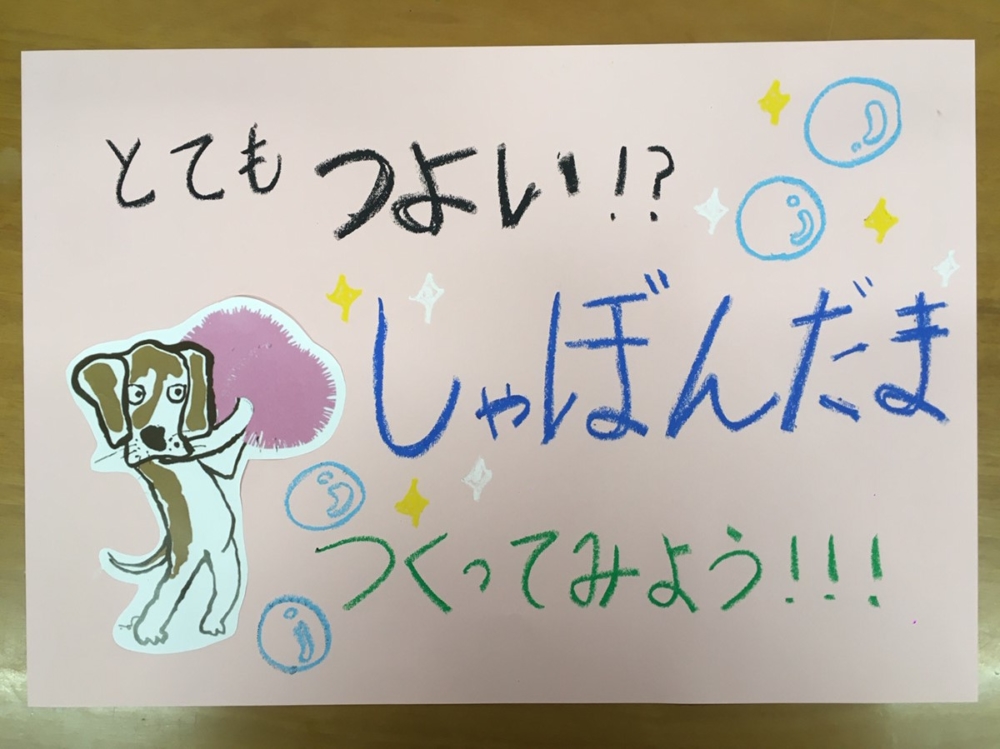 とてもつよい!?
しゃぼんだま
つくってみよう!!!